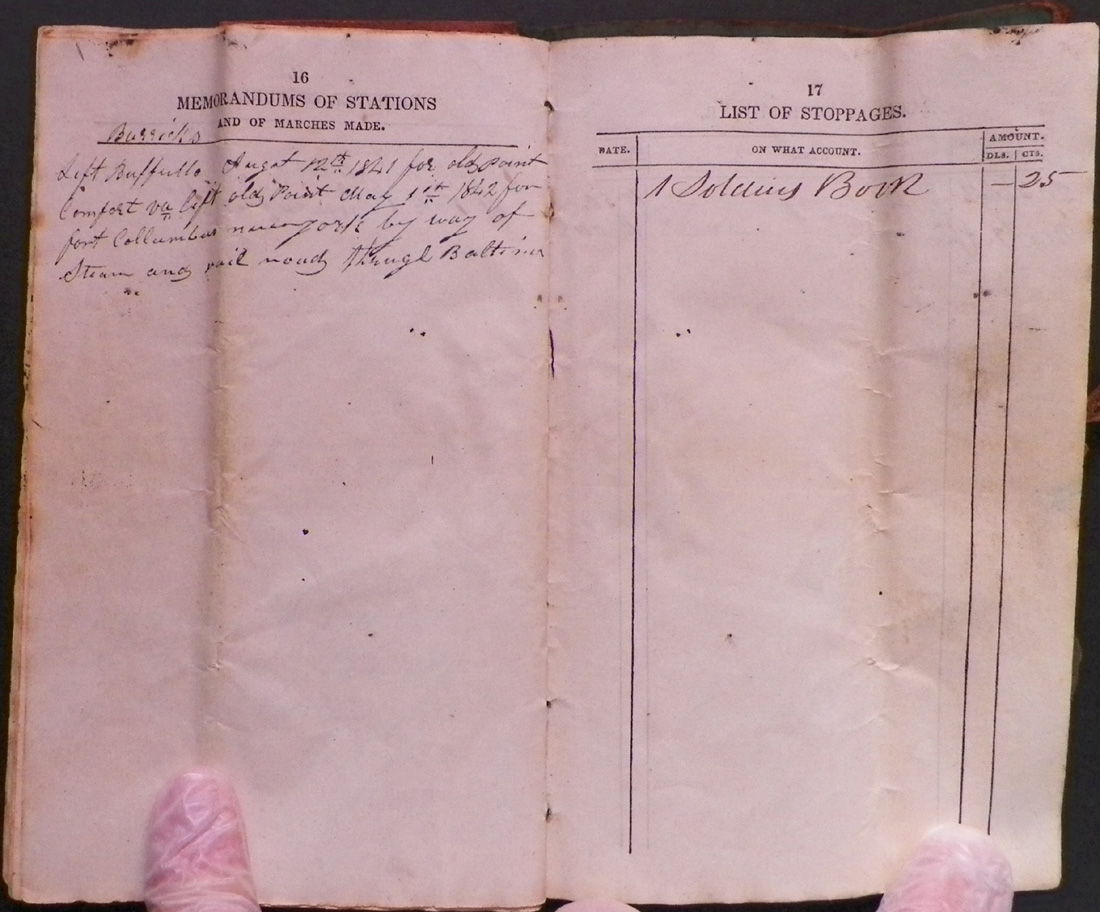 16
MEMORANDUMS OF STATIONS
AND OF MARCHES MADE.
Barricks
Left Buffullo Augat 12th 1841 for old Point
Comfort va Left old Point May 1st 1842 for
fort Collumbus newyork by way of
Steam and rail roud through Baltimer
17
LIST OF STOPPAGES.
DATE.
ON WHAT ACCOUNT.
AMOUNT.
DLS. CTS.
1 Soldiers Book — 25